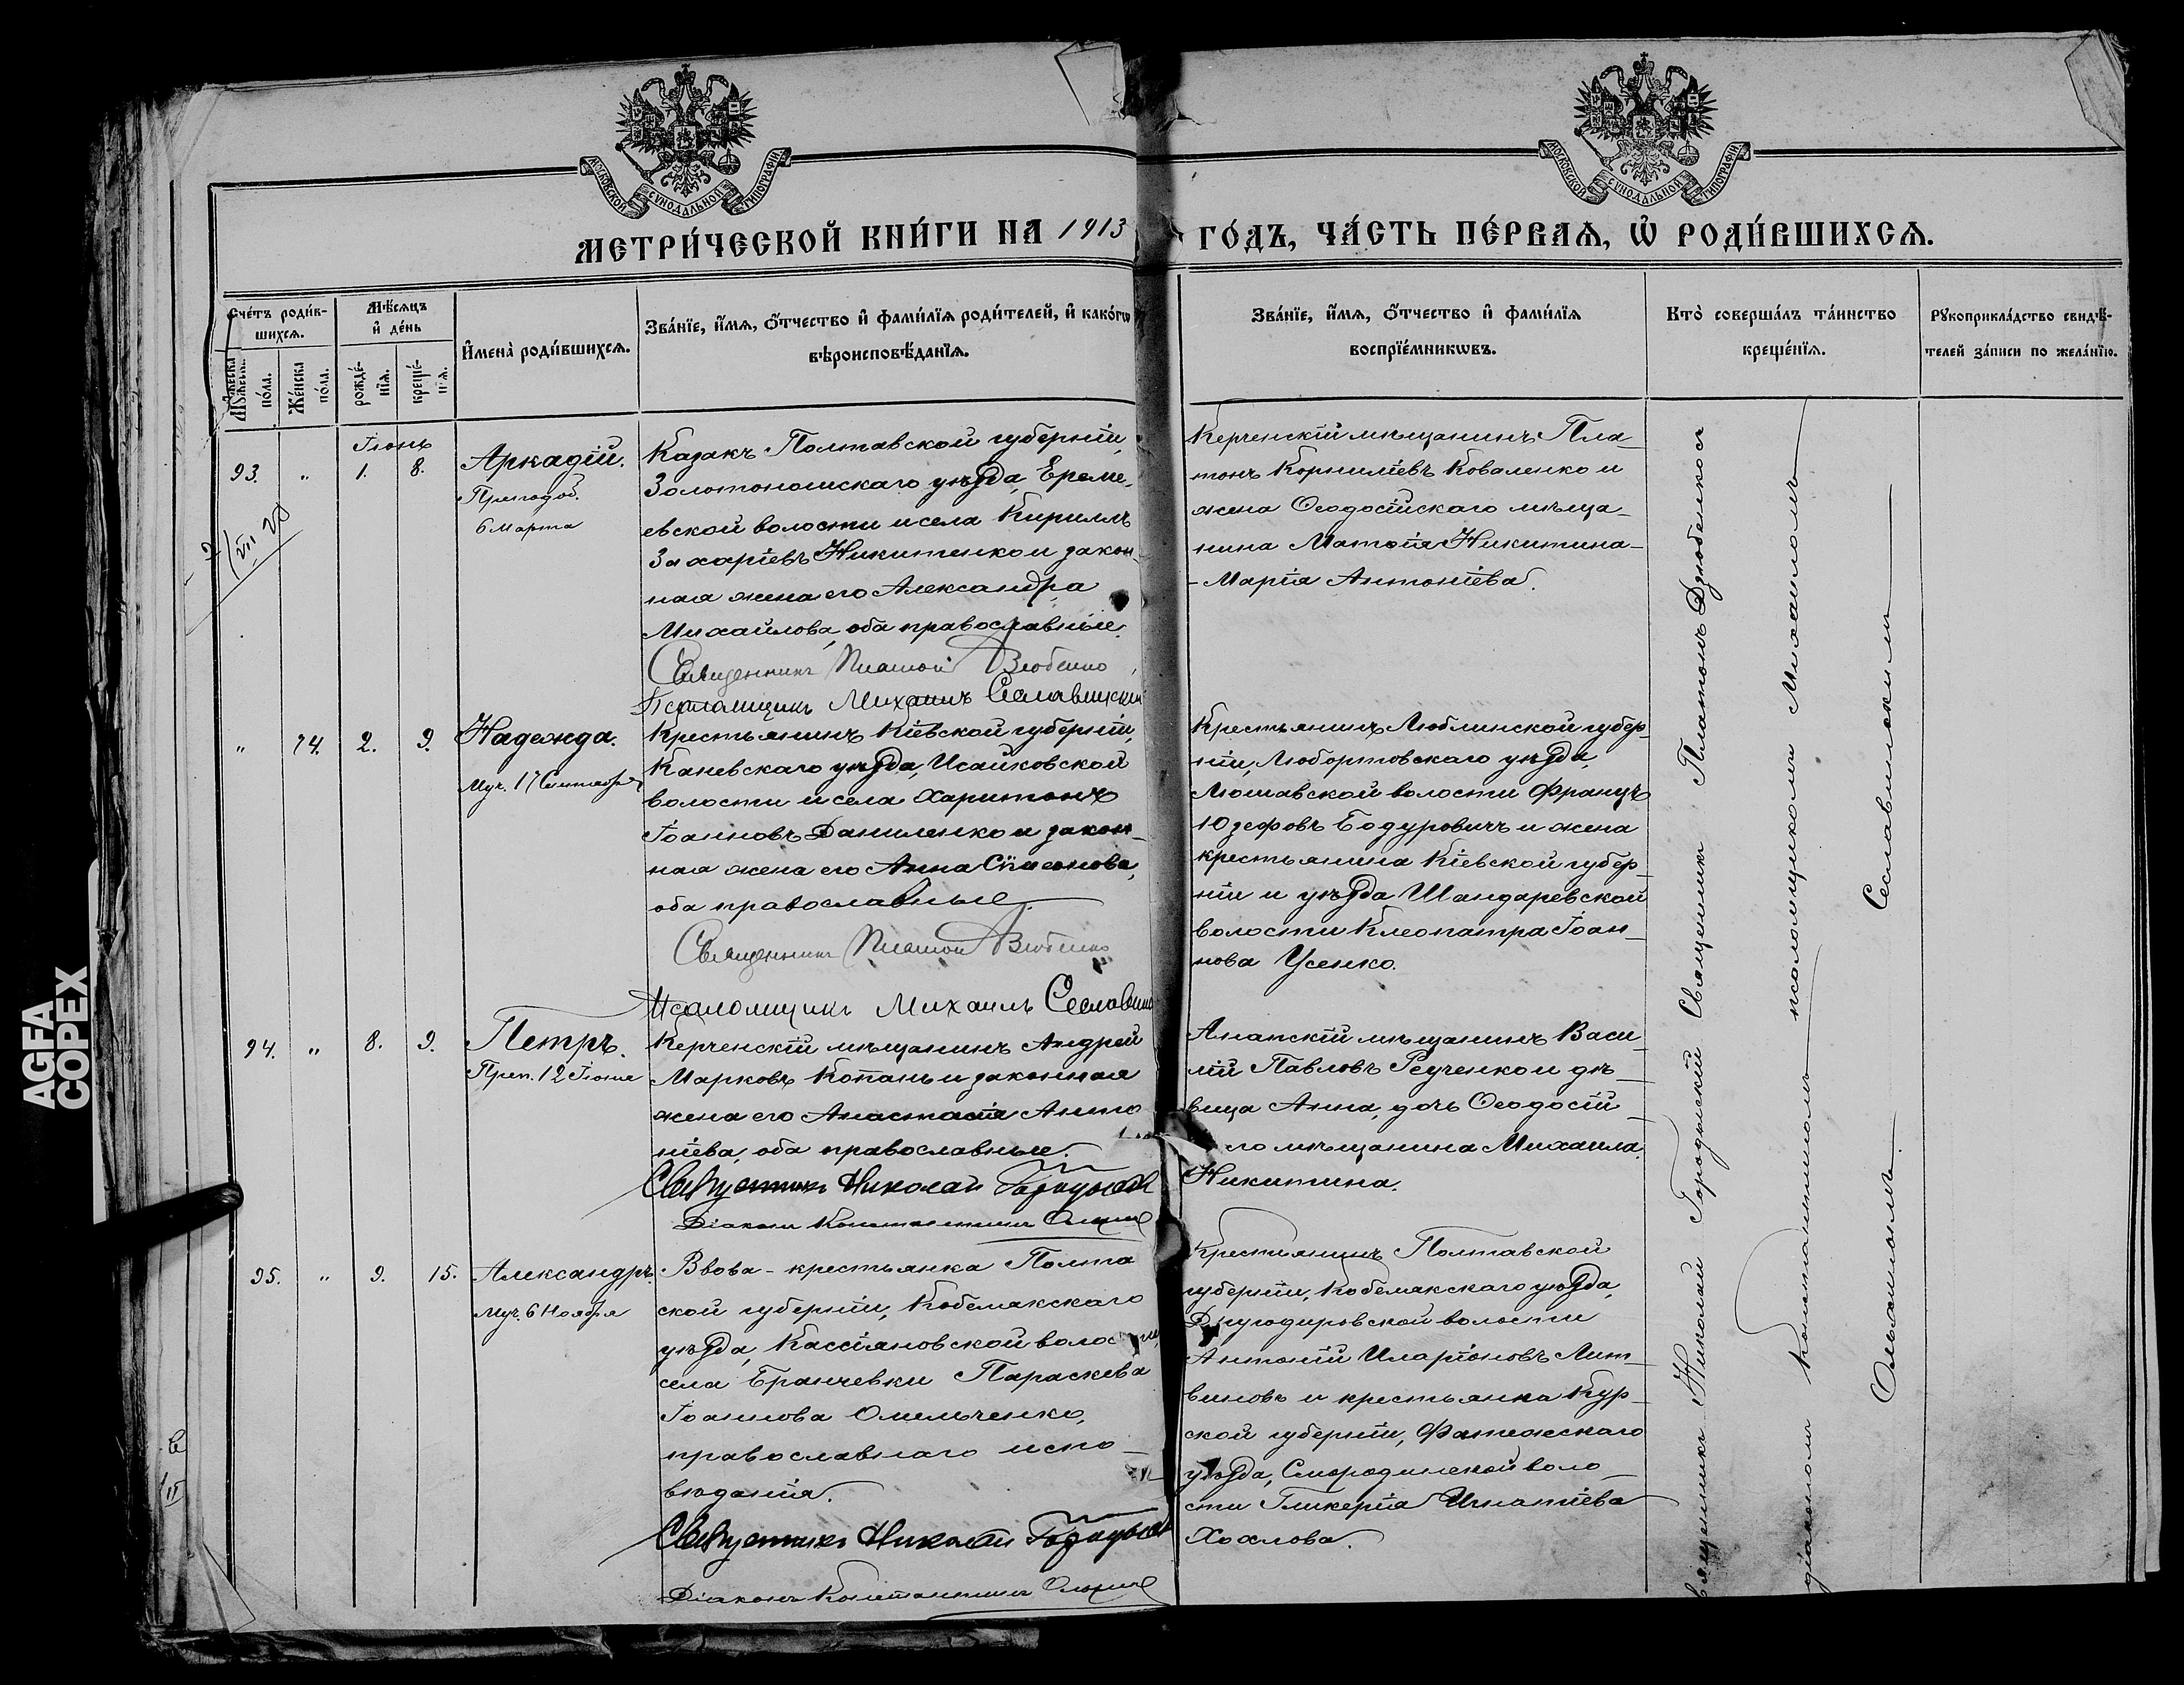 МОСКОВСКОЙ СѴНОДАЛЬНОЙ ТИПОГРАФІИ
МОСКОВСКОЙ СѴНОДАЛЬНОЙ ТИПОГРАФІИ
МЕТРИ́ЧЕСКОЙ КНИ́ГИ НА 1913
ГО́ДЪ, ЧА́СТЬ ПЕ́РВАѦ, Ѡ҆ РОДИ́ВШИХСѦ.
Сче́тъ роди́в-
шихсѧ.
Мꙋ́жеска
по́ла.
Же́нска
по́ла.
Мѣ́сѧцъ
и҆ де́нь
рожде́-
нїѧ.
креще́-
нїѧ.
И҆мена̀ роди́вшихсѧ.
Зва́нїе, и҆́мѧ, ѻ҆́тчество и҆ фами́лїѧ роди́телей, и҆ како́гѡ
вѣроисповѣ́данїѧ.
Зва́нїе, и҆́мѧ, ѻ҆́тчество и҆ фами́лїѧ
воспрїе́мникѡвъ.
Кто̀ соверша́лъ та́инство
креще́нїѧ.
Рꙋкоприкла́дство свидѣ́-
телей за́писи по жела́нїю.
Іюнь
93. " 1. 8.
Аркадій.
Преподоб.
6 Марта
Казакъ Полтавской губерніи,
Золотоношскаго уѣзда, Ереме-
евской волости и села Кириллъ
Захаріевъ Никитенко и закон-
ная жена его Александра
Михайлова, оба православные.
Священникъ Платонъ
Псаломщикъ Михаилъ Сеславинскій
Керченскій мѣщанинъ Пла-
тонъ Корниліевъ Коваленко и
жена Ѳеодосійскаго мѣща-
нина Матѳія Никитина-
-Марія Антоніева.
" 74. 2. 9.
Надежда.
Муч. 17 Сентября
Крестьянинъ Кіевской губерніи,
Каневскаго уѣзда, Исайковской
волости и села Харитонъ
Іоанновъ Даниленко и закон-
ная жена его Анна Сѵмеонова,
оба православные.
Священникъ Платонъ
Псаломщикъ Михаилъ
Крестьянинъ Люблинской губер-
ніи, Любортовскаго уѣзда,
волости Францъ
Юзефовъ Бодуровичъ и жена
крестьянина Кіевской губер-
ніи и уѣзда Шандаревской
волости Клеопатра Іоан-
нова Усенко.
94. " 8. 9.
Петръ.
Преп. 12 Іюня
Керченскій мѣщанинъ Андрей
Марковъ Копань и законная
жена его Анастасія Анто
ніева, оба православные.
Священникъ Николай
Діаконъ Константинъ
Анапскій мѣщанинъ Васи-
лій Павловъ Реученко и дѣ-
вица Анна, дочь Ѳеодосій-
го мѣщанина Михаила
Никитина.
95. " 9. 15.
Александръ.
Муч. 6 Ноября
Вдова - крестьянка Полта
ской губерніи, Кобелякскаго
уѣзда, Кассіановской волости,
села Бранчевки Параскева
Іоаннова Омельченко,
православнаго испо-
вѣданія.
Священникъ Николай
Діаконъ Константинъ
Крестьянинъ Полтавской
губерніи, Кобелякскаго уѣзда,
волости
Антоній Иларіоновъ Лит-
виновъ и крестьянка Кур-
ской губерніи, Фатежскаго
уѣзда, Смородинской воло-
сти Гликерія Игнатіева
Хохлова.
Священникъ Николай Городнскій Священникъ Платонъ
діакономъ Константиномъ псаломщикомъ Михаиломъ
Сеславинскимъ
AGFA
COPEX